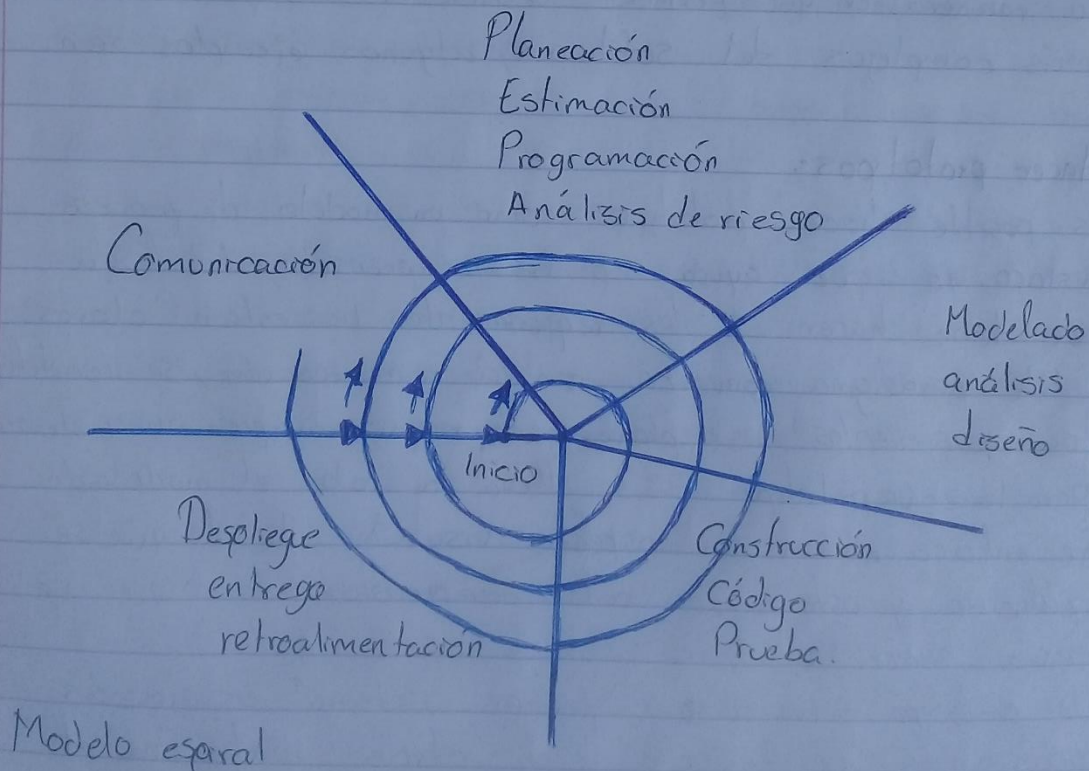 Planeación
Estimación
Programación
Análisis de riesgo
Comunicación
Modelado
análisis
diseño
Inicio
Despliege
entrega
retroalimentación
Construcción
Código
Prueba.
Modelo espiral